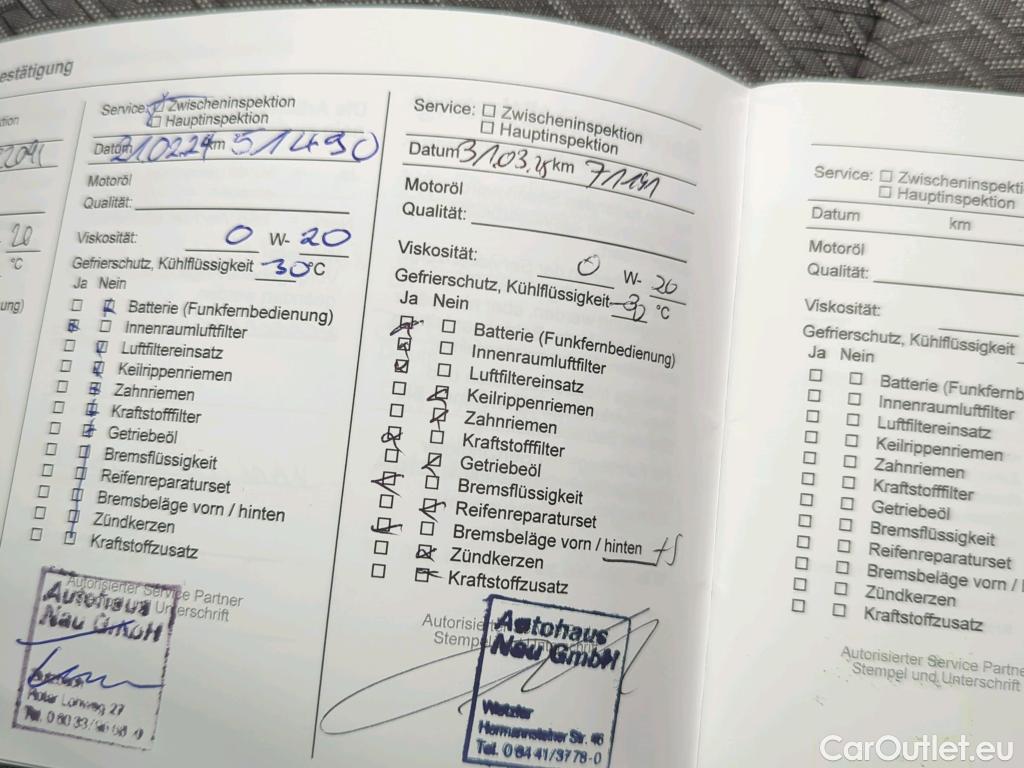 estätigung
20
°C
Service: Zwischeninspektion
Hauptinspektion
Datum 21.02.24 km 51490
Motoröl
Qualität:
Viskosität: 0 W- 20
Gefrierschutz, Kühlflüssigkeit -30°C
Ja Nein
Batterie (Funkfernbedienung)
Innenraumluftfilter
Luftfiltereinsatz
Keilrippenriemen
Zahnriemen
Kraftstofffilter
Getriebeöl
Bremsflüssigkeit
Reifenreparaturset
Bremsbeläge vorn / hinten
Zündkerzen
Kraftstoffzusatz
Autorisierter Service Partner
Stempel und Unterschrift
Autohaus
Nau GmbH
Service: Zwischeninspektion
Hauptinspektion
Datum 31.03.25 km 71191
Motoröl
Qualität:
Viskosität: 0 W- 20
Gefrierschutz, Kühlflüssigkeit -32 °C
Ja Nein
Batterie (Funkfernbedienung)
Innenraumluftfilter
Luftfiltereinsatz
Keilrippenriemen
Zahnriemen
Kraftstofffilter
Getriebeöl
Bremsflüssigkeit
Reifenreparaturset
Bremsbeläge vorn / hinten
Zündkerzen
Kraftstoffzusatz
Autorisierter
Stempel und
Autohaus
Nau GmbH
Wetzlar
Hermannsteiner Str. 46
Tel. 0 64 41/3778-0
Service: Zwischeninspekti
Hauptinspektion
Datum km
Motoröl
Qualität:
Viskosität:
Gefrierschutz, Kühlflüssigkeit
Ja Nein
Batterie (Funkfernb
Innenraumluftfilter
Luftfiltereinsatz
Keilrippenriemen
Zahnriemen
Kraftstofffilter
Getriebeöl
Bremsflüssigkeit
Reifenreparaturset
Bremsbeläge vorn /
Zündkerzen
Kraftstoffzusatz
Autorisierter Service Partne
Stempel und Unterschrift
CarOutlet.eu